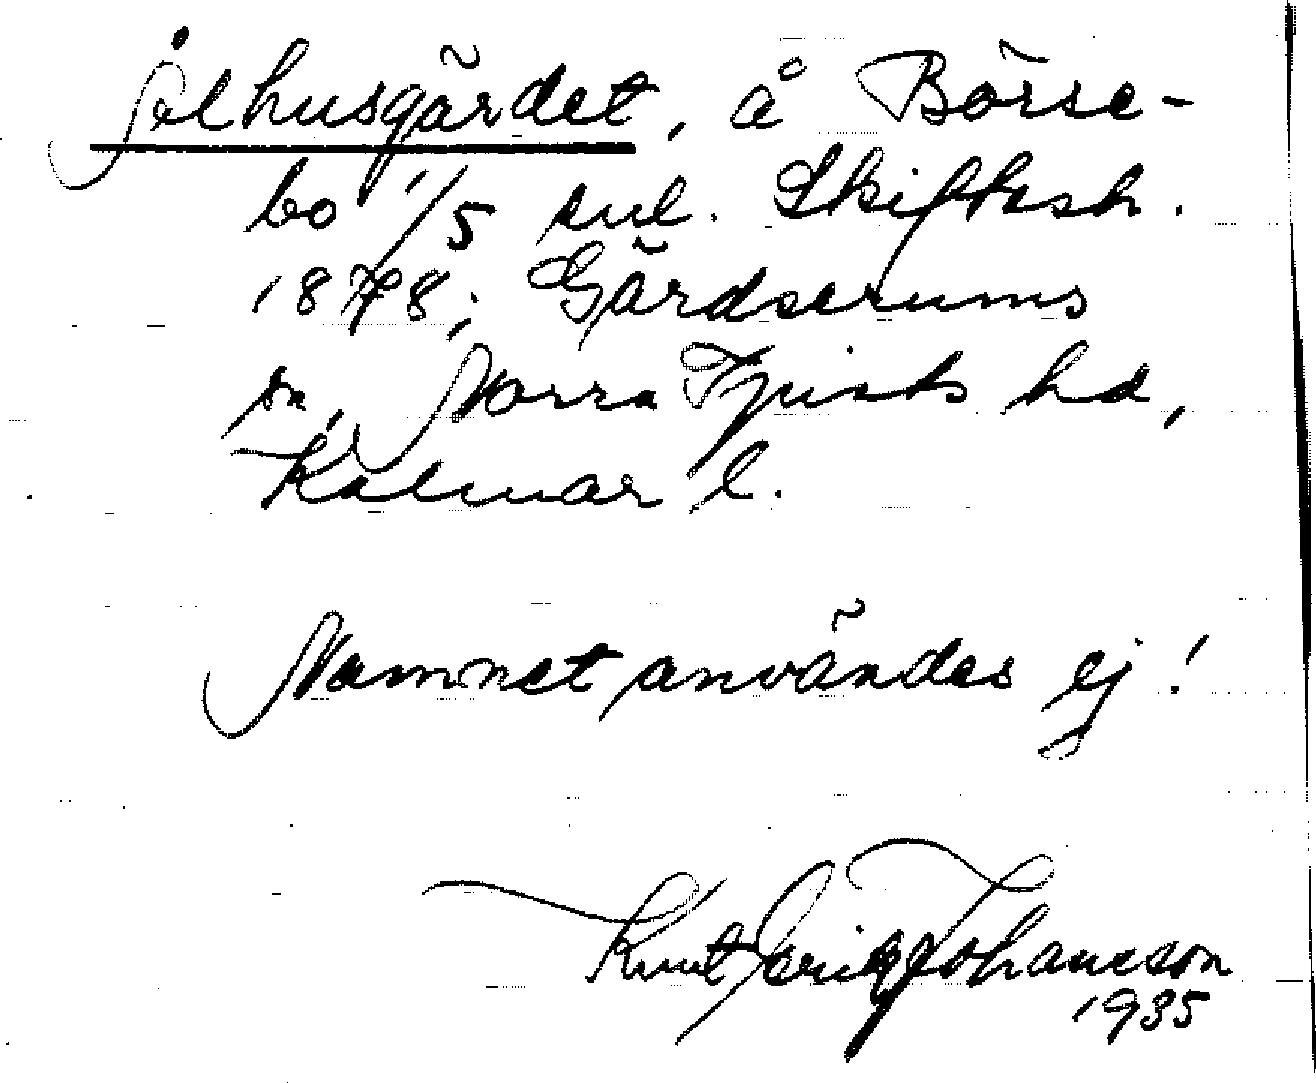 Ålhusgärdet, å Börse-
bo 1/5 Skiftesh.
1878; Gärdserums
sn, Norra Tjusts hd,
Kalmar l.
Namnet användes ej!
Knut Erik Johansson
1935